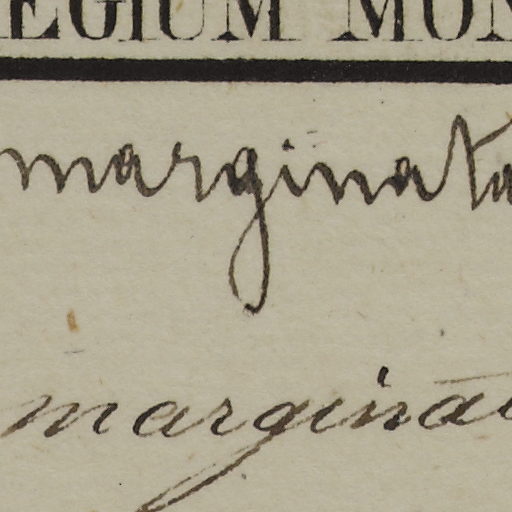 EGIUM MON
marginata
marginat